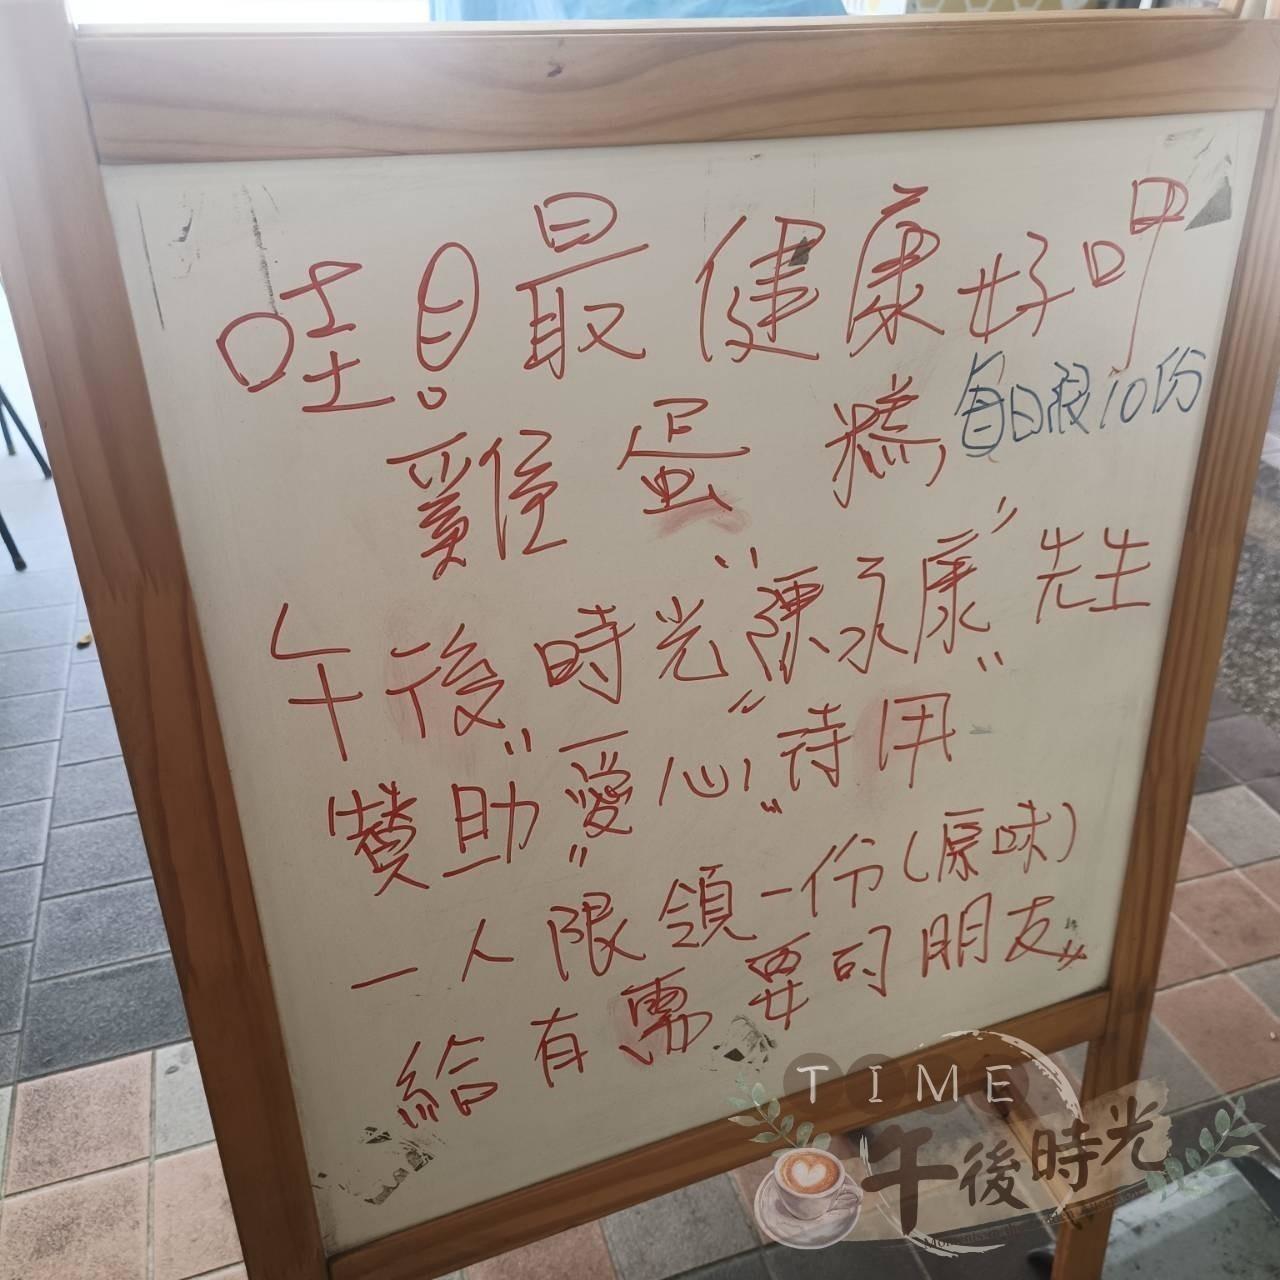 哇!最健康好呷
雞蛋糕 每日限10份
午後時光"陳永康"先生
贊助"愛心""待用"
一人限領一份(原味)
給有需要的朋友
TIME
午後時光